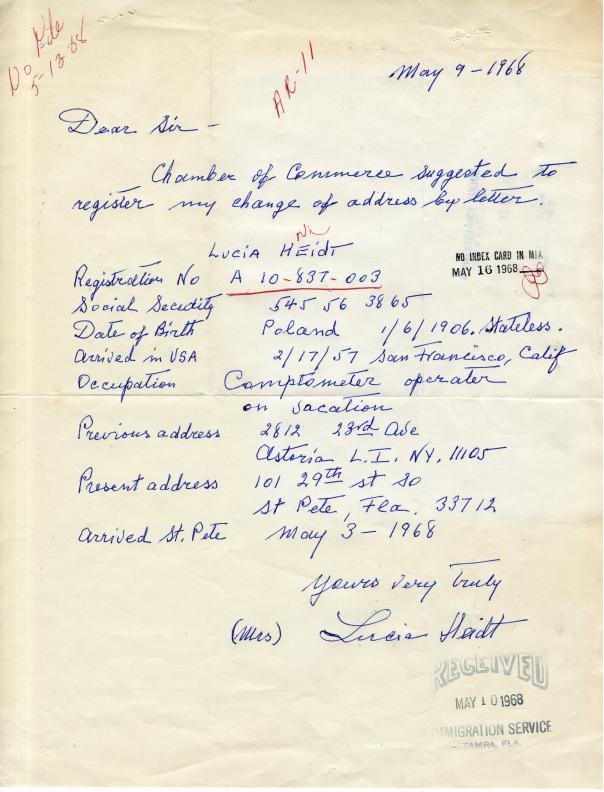 No File
5-13-68
AR-11
May 9-1968
Dear Sir -
Chamber of Commerce suggested to
register my change of address by letter.
Lucia Heidt
NO INDEX CARD IN MIA
MAY 16 1968
Registration No A 10-837-003
Social Security 545 56 3865
Date of Birth Poland 1/6/1906. Stateless.
Arrived in USA 2/17/57 San Francisco, Calif
Occupation Comptometer operater
on vacation
Previous address 2812 23rd Ave
Astoria L.I. NY. 11105
Present address 101 29th st So
St Pete, Fla. 33712
Arrived St. Pete May 3-1968
Yours very Truly
(Mrs) Lucia Heidt
RECEIVED
MAY 10 1968
IMMIGRATION SERVICE
TAMPA, FLA.